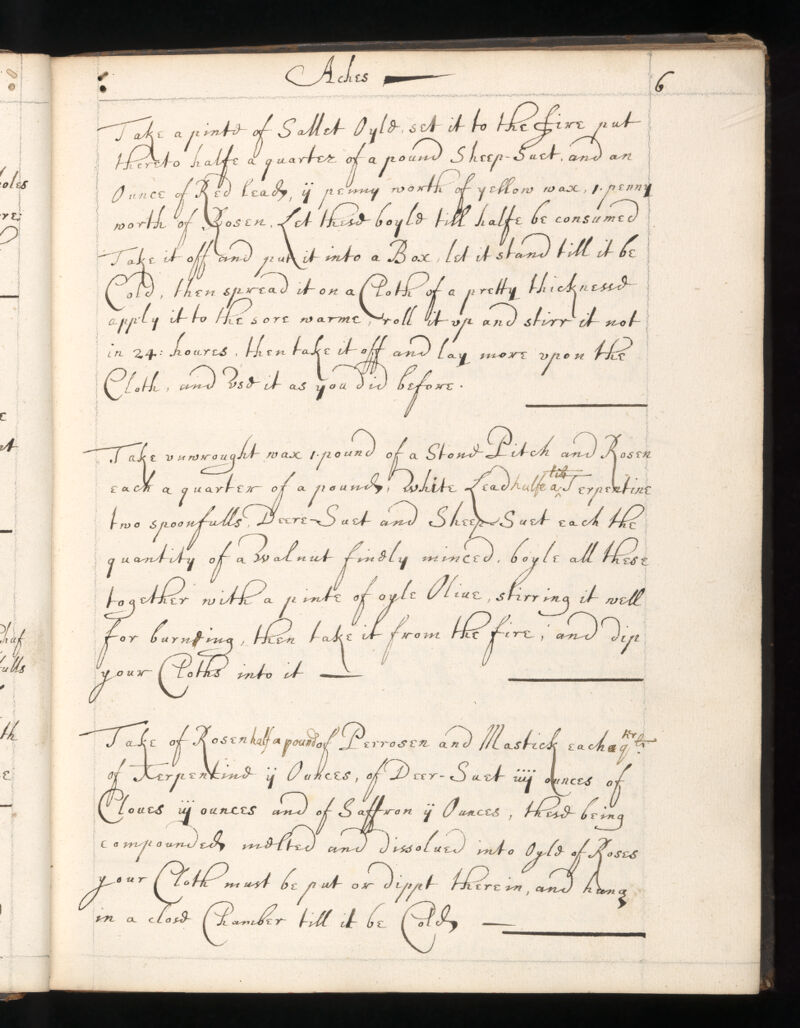 Aches
6
Take a pinte of Sallet Oyle, set it to the fire put
thereto halfe a quarter of a pound Sheep-Suet, and an
Ounce of Red lead, ij penny worth of yellow wax, 1 penny
worth of Rosen, Let these boyle till halfe be consumed
Take it off and put it into a Box, let it stand till it be
Cold, then spread it on a Cloth of a pretty thicknesse
apply it to the sore warme, roll it vp and stirr it not
in 24: houres, then take it off and lay more vpon the
Cloth, and Vse it as you did before.
Take vnwrought wax 1 pound of a Stone Pitch and Rosen
each a quarter of a pound, White Lead halfe a lib Terpentine
two spoonfulls, Deere-Suet and Sheep-Suet each the
quantity of a Walnut finely minced, boyle all these
together with a pinte of oyle Oliue, stirring it well
for burneing, then take it from the fire, and dip
your Cloths into it
Take of Rosen half a pound of Perrosen and Mastick each a qrtr
of Terpentine ij Ounces, of Deer-Suet iiij ounces of
Cloues iij ounces and of Saffron ij Ounces, these being
compounded melted and dissolued into Oyle of Roses
your Cloth must be put or dippt therein, and hang
in a close Chamber till it be Cold
oles
re
fulls
th